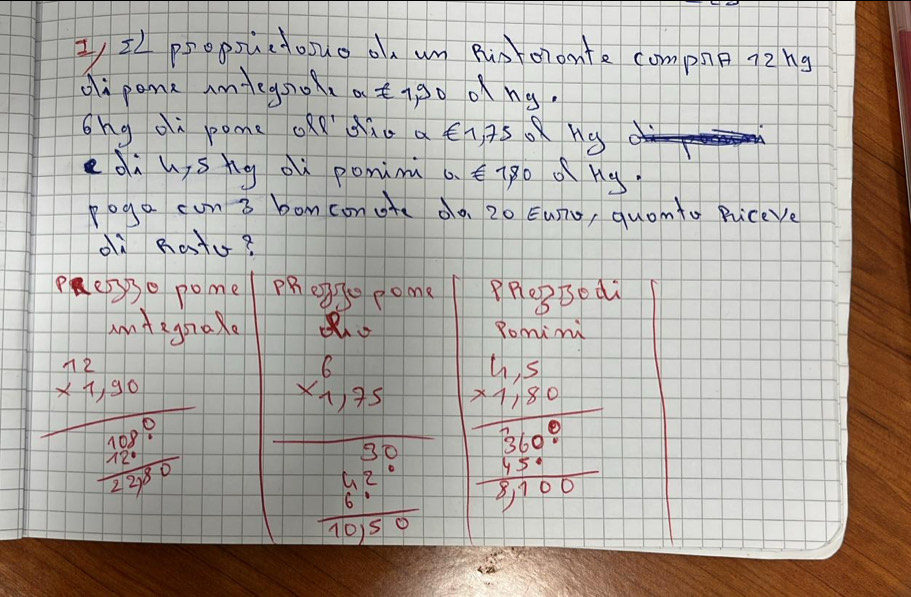 1) Il proprietario di un Ristorante compra 12 kg
di pane integrale a € 1,90 al kg.
6 kg di pane all'olio a € 1,75 al kg
e di 4,5 kg di panini a € 1,80 al kg.
paga con 3 banconote da 20 Euro, quanto Riceve
di Resto?
PRezzo pane integrale
12
× 1,90
0
108
12
22,80
PRezzo pane olio
6
× 1,75
30
42
6
10,50
PRezzo di Panini
4,5
× 1,80
0
360
45
8,100